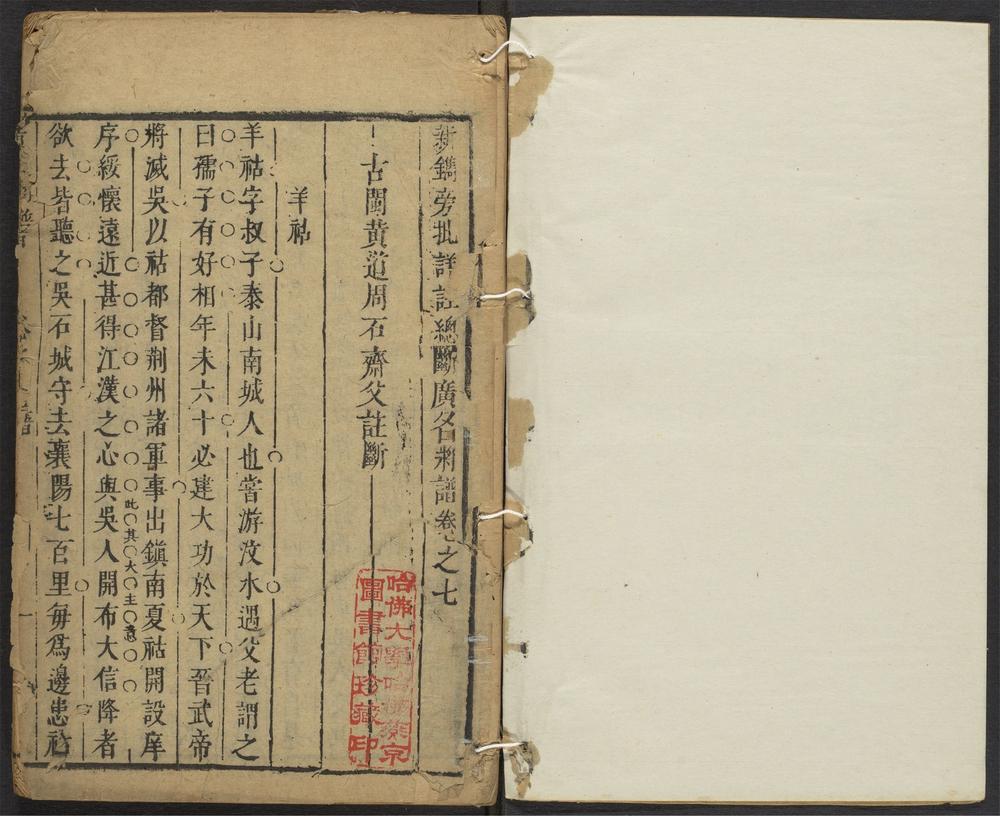 新鐫旁批詳註總斷廣名將譜卷之七
古閩黃道周石齋父註斷
羊祜
羊祜字叔子泰山南城人也嘗游汶水遇父老謂之
曰孺子有好相年未六十必建大功於天下晉武帝
將滅吳以祜都督荆州諸軍事出鎮南夏祜開設庠
此其大主意
序綏懷遠近甚得江漢之心與吳人開布大信降者
欲去皆聽之吳石城守去襄陽七百里每爲邊患祜
哈佛大學哈佛燕京
圖書館珍藏印